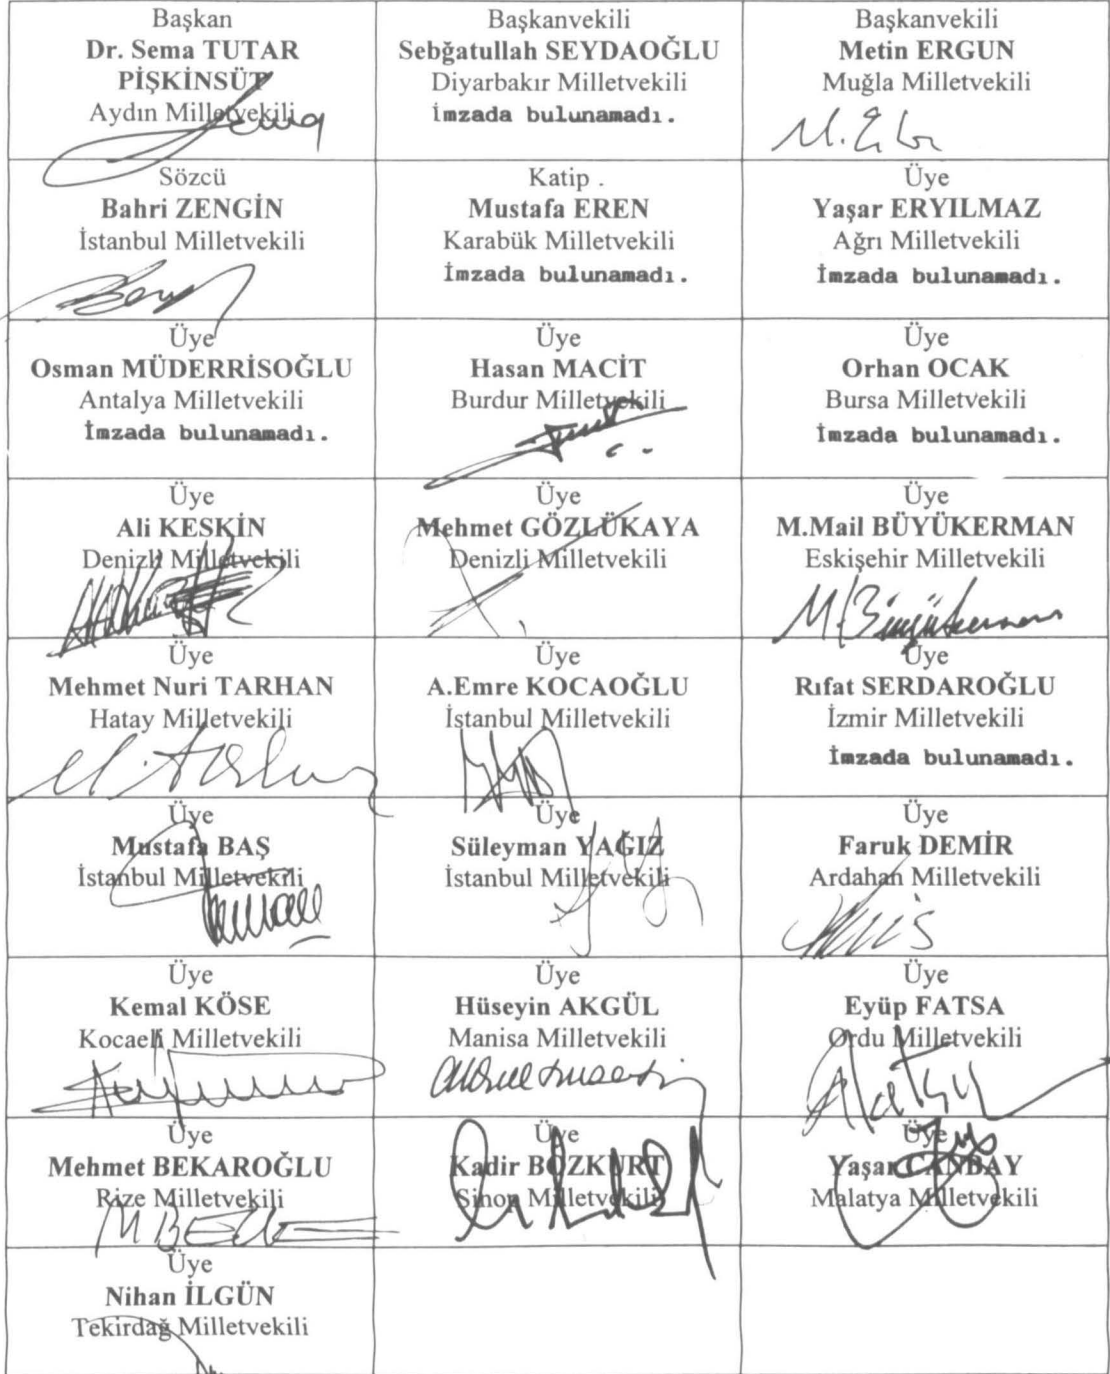 Başkan
Dr. Sema TUTAR
PİŞKİNSÜT
Aydın Milletvekili
Başkanvekili
Sebğatullah SEYDAOĞLU
Diyarbakır Milletvekili
İmzada bulunamadı.
Başkanvekili
Metin ERGUN
Muğla Milletvekili
Sözcü
Bahri ZENGİN
İstanbul Milletvekili
Katip .
Mustafa EREN
Karabük Milletvekili
İmzada bulunamadı.
Üye
Yaşar ERYILMAZ
Ağrı Milletvekili
İmzada bulunamadı.
Üye
Osman MÜDERRİSOĞLU
Antalya Milletvekili
İmzada bulunamadı.
Üye
Hasan MACİT
Burdur Milletvekili
Üye
Orhan OCAK
Bursa Milletvekili
İmzada bulunamadı.
Üye
Ali KESKİN
Denizli Milletvekili
Üye
Mehmet GÖZLÜKAYA
Denizli Milletvekili
Üye
M.Mail BÜYÜKERMAN
Eskişehir Milletvekili
M.Büyükerman
Üye
Mehmet Nuri TARHAN
Hatay Milletvekili
Üye
A.Emre KOCAOĞLU
İstanbul Milletvekili
Üye
Rıfat SERDAROĞLU
İzmir Milletvekili
İmzada bulunamadı.
Üye
Mustafa BAŞ
İstanbul Milletvekili
Üye
Süleyman YAĞIZ
İstanbul Milletvekili
Üye
Faruk DEMİR
Ardahan Milletvekili
Üye
Kemal KÖSE
Kocaeli Milletvekili
Üye
Hüseyin AKGÜL
Manisa Milletvekili
Üye
Eyüp FATSA
Ordu Milletvekili
Üye
Mehmet BEKAROĞLU
Rize Milletvekili
Üye
Kadir BOZKURT
Sinop Milletvekili
Üye
Yaşar CANBAY
Malatya Milletvekili
Üye
Nihan İLGÜN
Tekirdağ Milletvekili